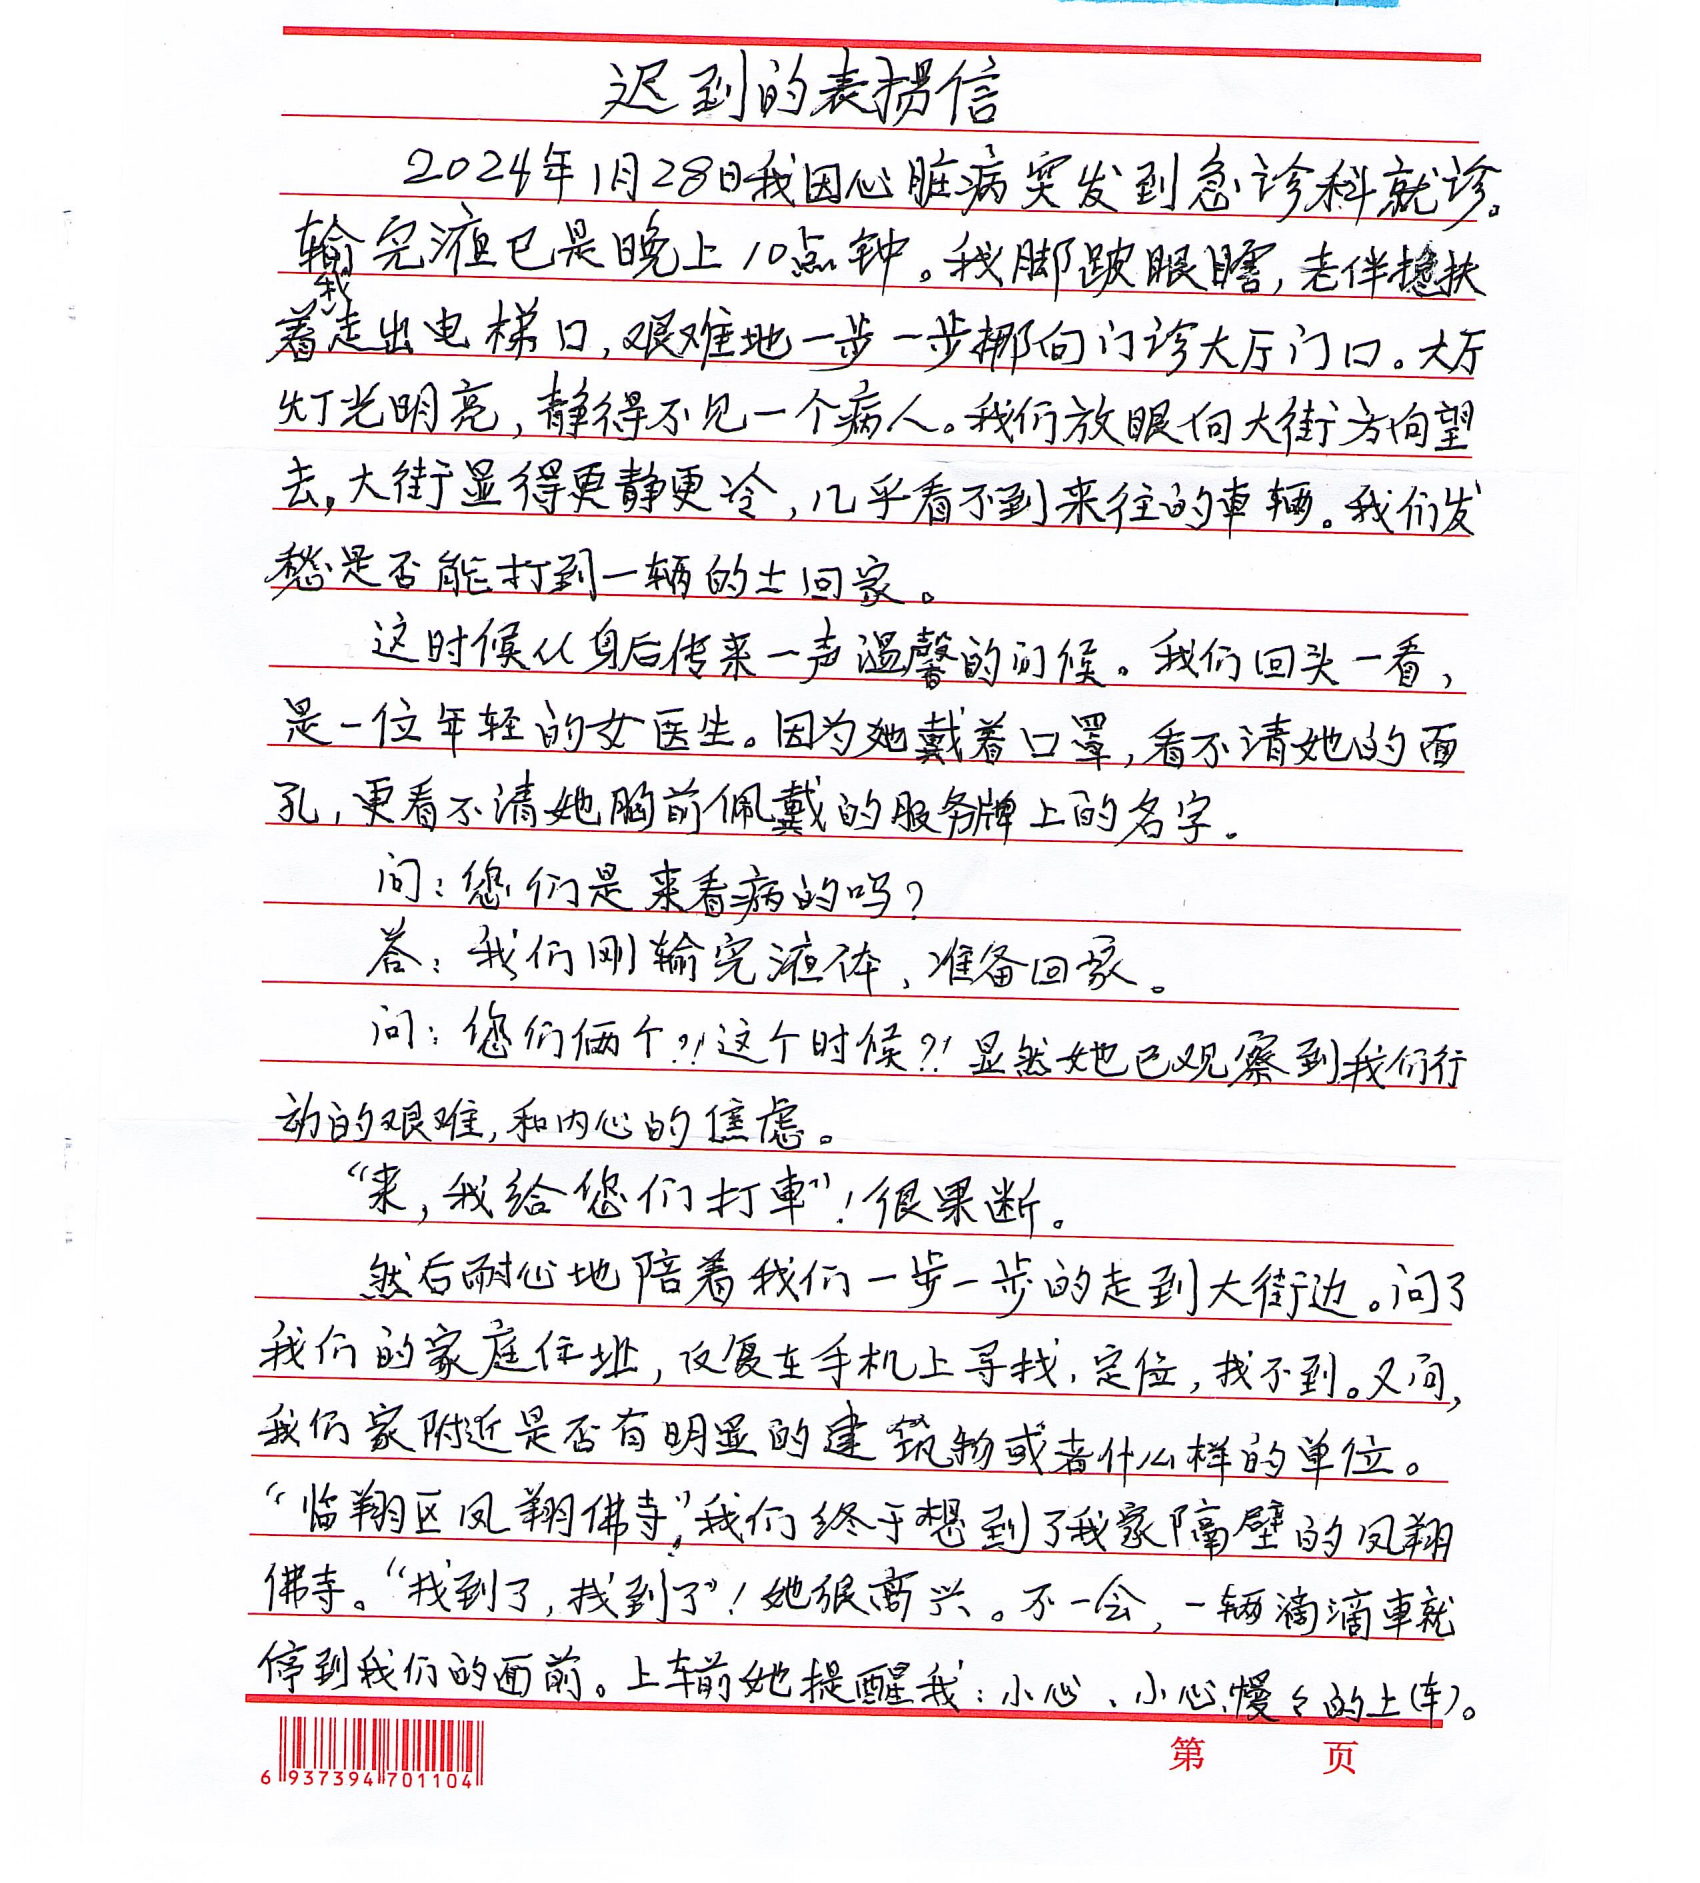 迟到的表扬信
2024年1月28日我因心脏病突发到急诊科就诊。
输完液已是晚上10点钟。我脚跛眼瞎，老伴搀扶
着我走出电梯口，艰难地一步一步挪向门诊大厅门口。大厅
灯光明亮，静得不见一个病人。我们放眼向大街方向望
去，大街显得更静更冷，几乎看不到来往的車辆。我们发
愁是否能打到一辆的士回家。
这时候从身后传来一声温馨的问候。我们回头一看，
是一位年轻的女医生。因为她戴着口罩，看不清她的面
孔，更看不清她胸前佩戴的服务牌上的名字。
问：您们是来看病的吗？
答：我们刚输完液体，准备回家。
问：您们俩个?!!这个时候?!!显然她已观察到我们行
动的艰难，和内心的焦虑。
“来，我给您们打車”！很果断。
然后耐心地陪着我们一步一步的走到大街边。问了
我们的家庭住址，反复在手机上寻找，定位，找不到。又问，
我们家附近是否有明显的建筑物或者什么样的单位。
“临翔区凤翔佛寺”，我们终于想到了我家隔壁的凤翔
佛寺。“找到了，找到了”！她很高兴。不一会，一辆滴滴車就
停到我们的面前。上车前她提醒我：小心、小心，慢々的上(车)。
6 937394 701104
第 页